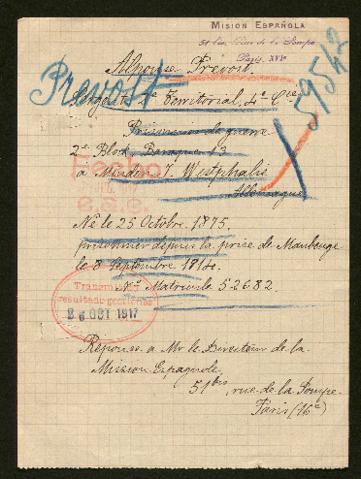 MISION ESPAÑOLA
51 bis, Rue de la Pompe
Paris, XVIe
Alphonse Prevost
Prevost
59542
Sergent Territorial, 4e Cie
Prisonnier de guerre
2e Block, Baraque 3
à Minden 7. Westphalie
Allemagne
Hecho
Né le 25 Octobre 1875
prisonnier depuis la prise de Maubeuge
le 8 Septembre 1914.
Matricule 52682.
26 OCT 1917
Réponse a Mr le Directeur de la
Mission Espagnole,
51bis, rue de la Pompe.
Paris (16e)